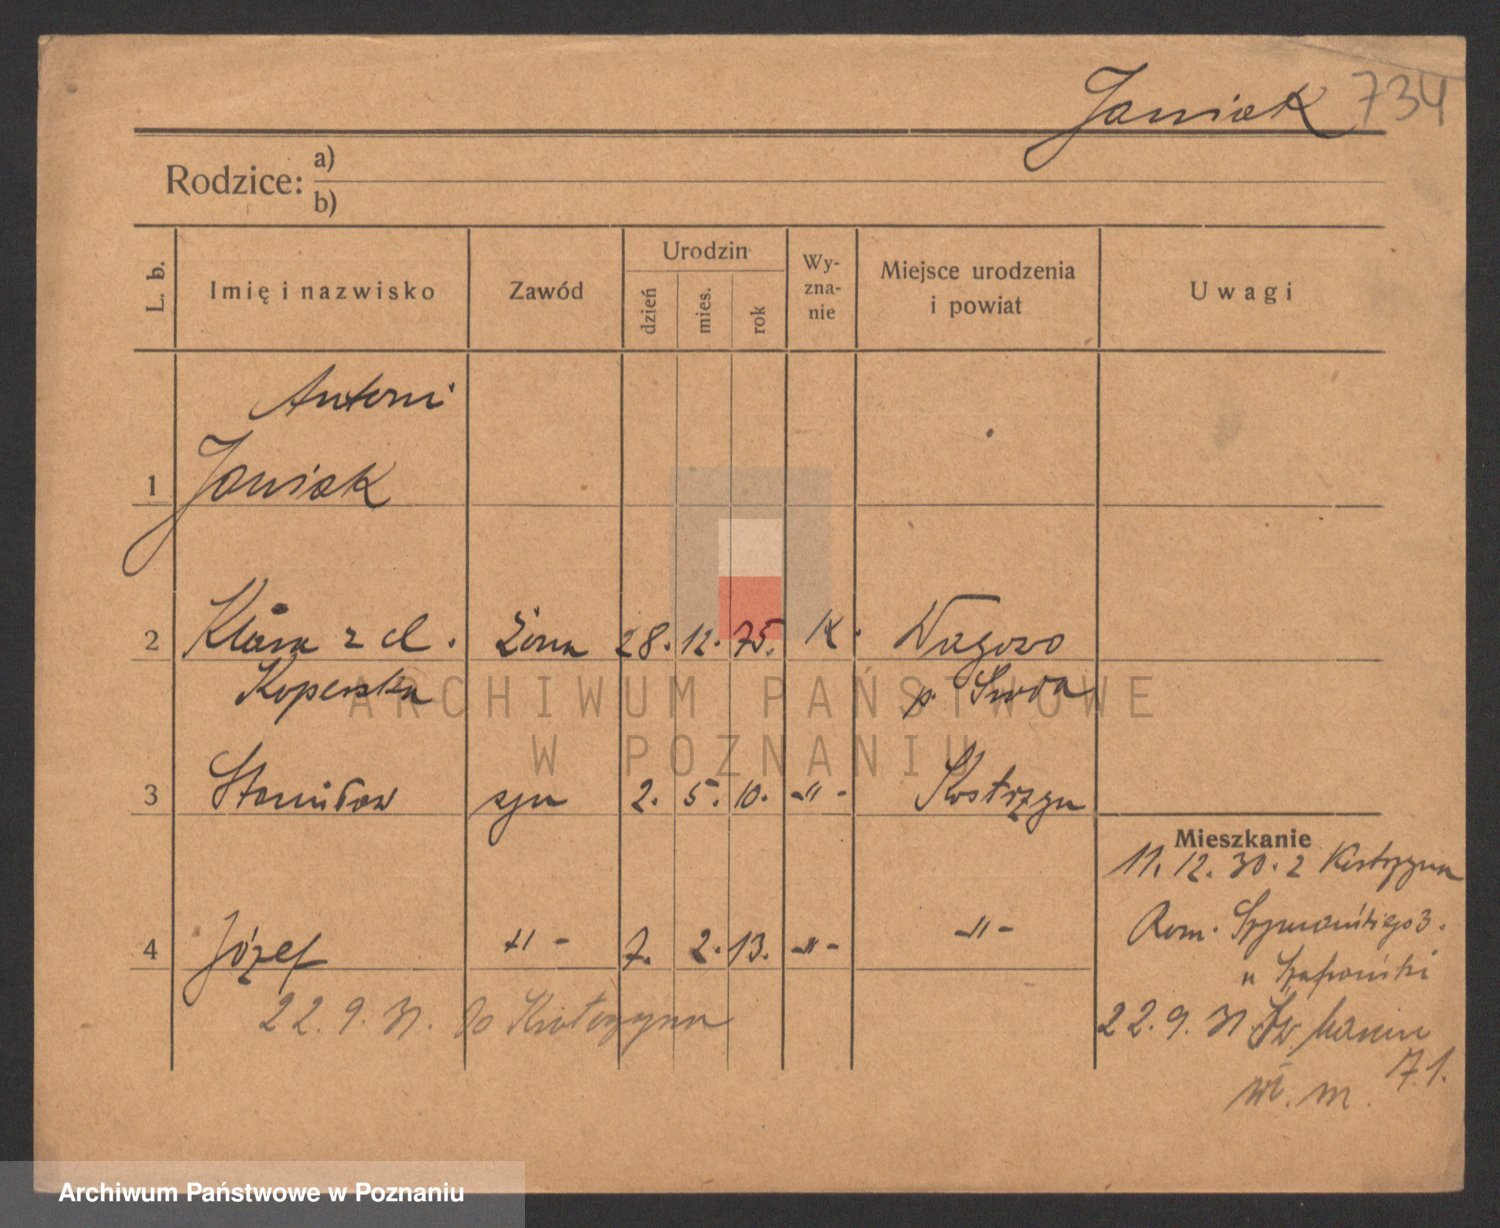 Janiak 734
Rodzice: a)
b)
L. b.
Imię i nazwisko
Zawód
Urodzin
dzień
mies.
rok
Wy-
zna-
nie
Miejsce urodzenia
i powiat
Uwagi
Antoni
1 Janiak
2 Klara z d. żona 28. 12. 75. K. Wagowo
Koperska p. Środa
ARCHIWUM PAŃSTWOWE
W POZNANIU
3 Stanisław syn 2. 5. 10. -"- Kostrzyn
Mieszkanie
11. 12. 30. z Kostrzyna
4 Józef -"- 7. 2. 13. -"- -"-
Rom. Szymańskiego 3.
u
22. 9. 31. do
22. 9. 31. Św. Marcin
71.
m.
Archiwum Państwowe w Poznaniu